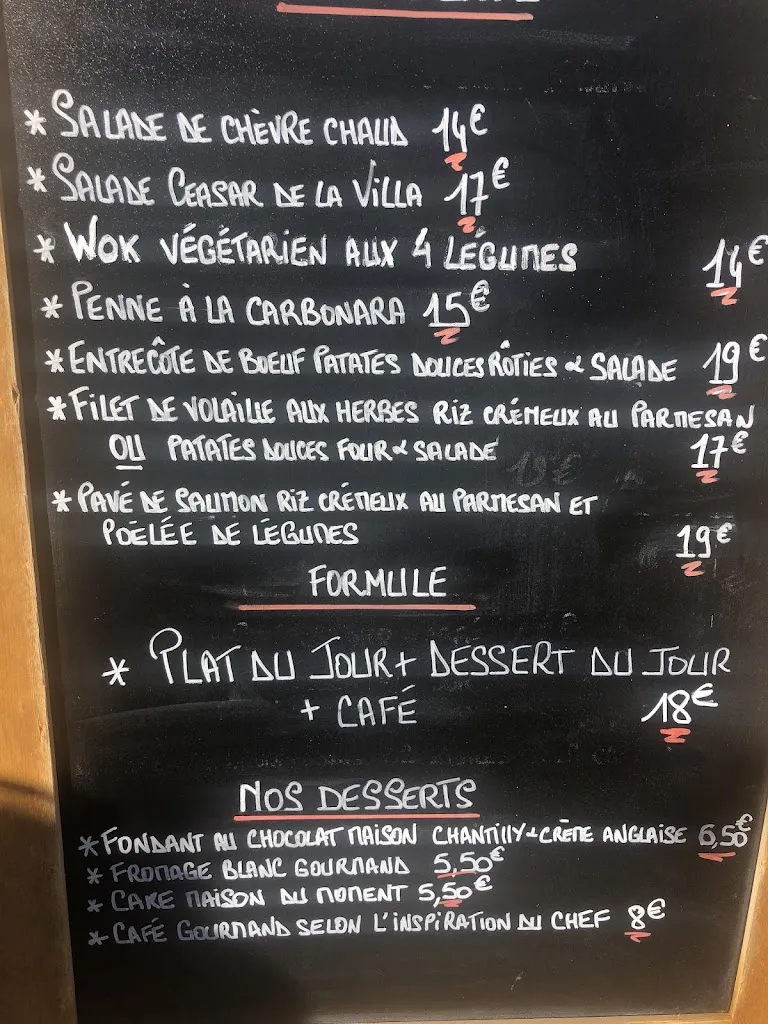 * SALADE DE CHÈVRE CHAUD 14€
* SALADE CEASAR DE LA VILLA 17€
* WOK VÉGÉTARIEN AUX 4 LÉGUMES 14€
* PENNE À LA CARBONARA 15€
* ENTRECÔTE DE BOEUF PATATES DOUCES RÔTIES & SALADE 19€
* FILET DE VOLAILLE AUX HERBES RIZ CRÉMEUX AU PARMESAN
OU PATATES DOUCES FOUR & SALADE 17€
* PAVÉ DE SAUMON RIZ CRÉMEUX AU PARMESAN ET
POÊLÉE DE LÉGUMES 19€
FORMULE
* PLAT DU JOUR + DESSERT DU JOUR
+ CAFÉ 18€
NOS DESSERTS
* FONDANT AU CHOCOLAT MAISON CHANTILLY & CRÈME ANGLAISE 6,50€
* FROMAGE BLANC GOURMAND 5,50€
* CAKE MAISON DU MOMENT 5,50€
* CAFÉ GOURMAND SELON L'INSPIRATION DU CHEF 8€